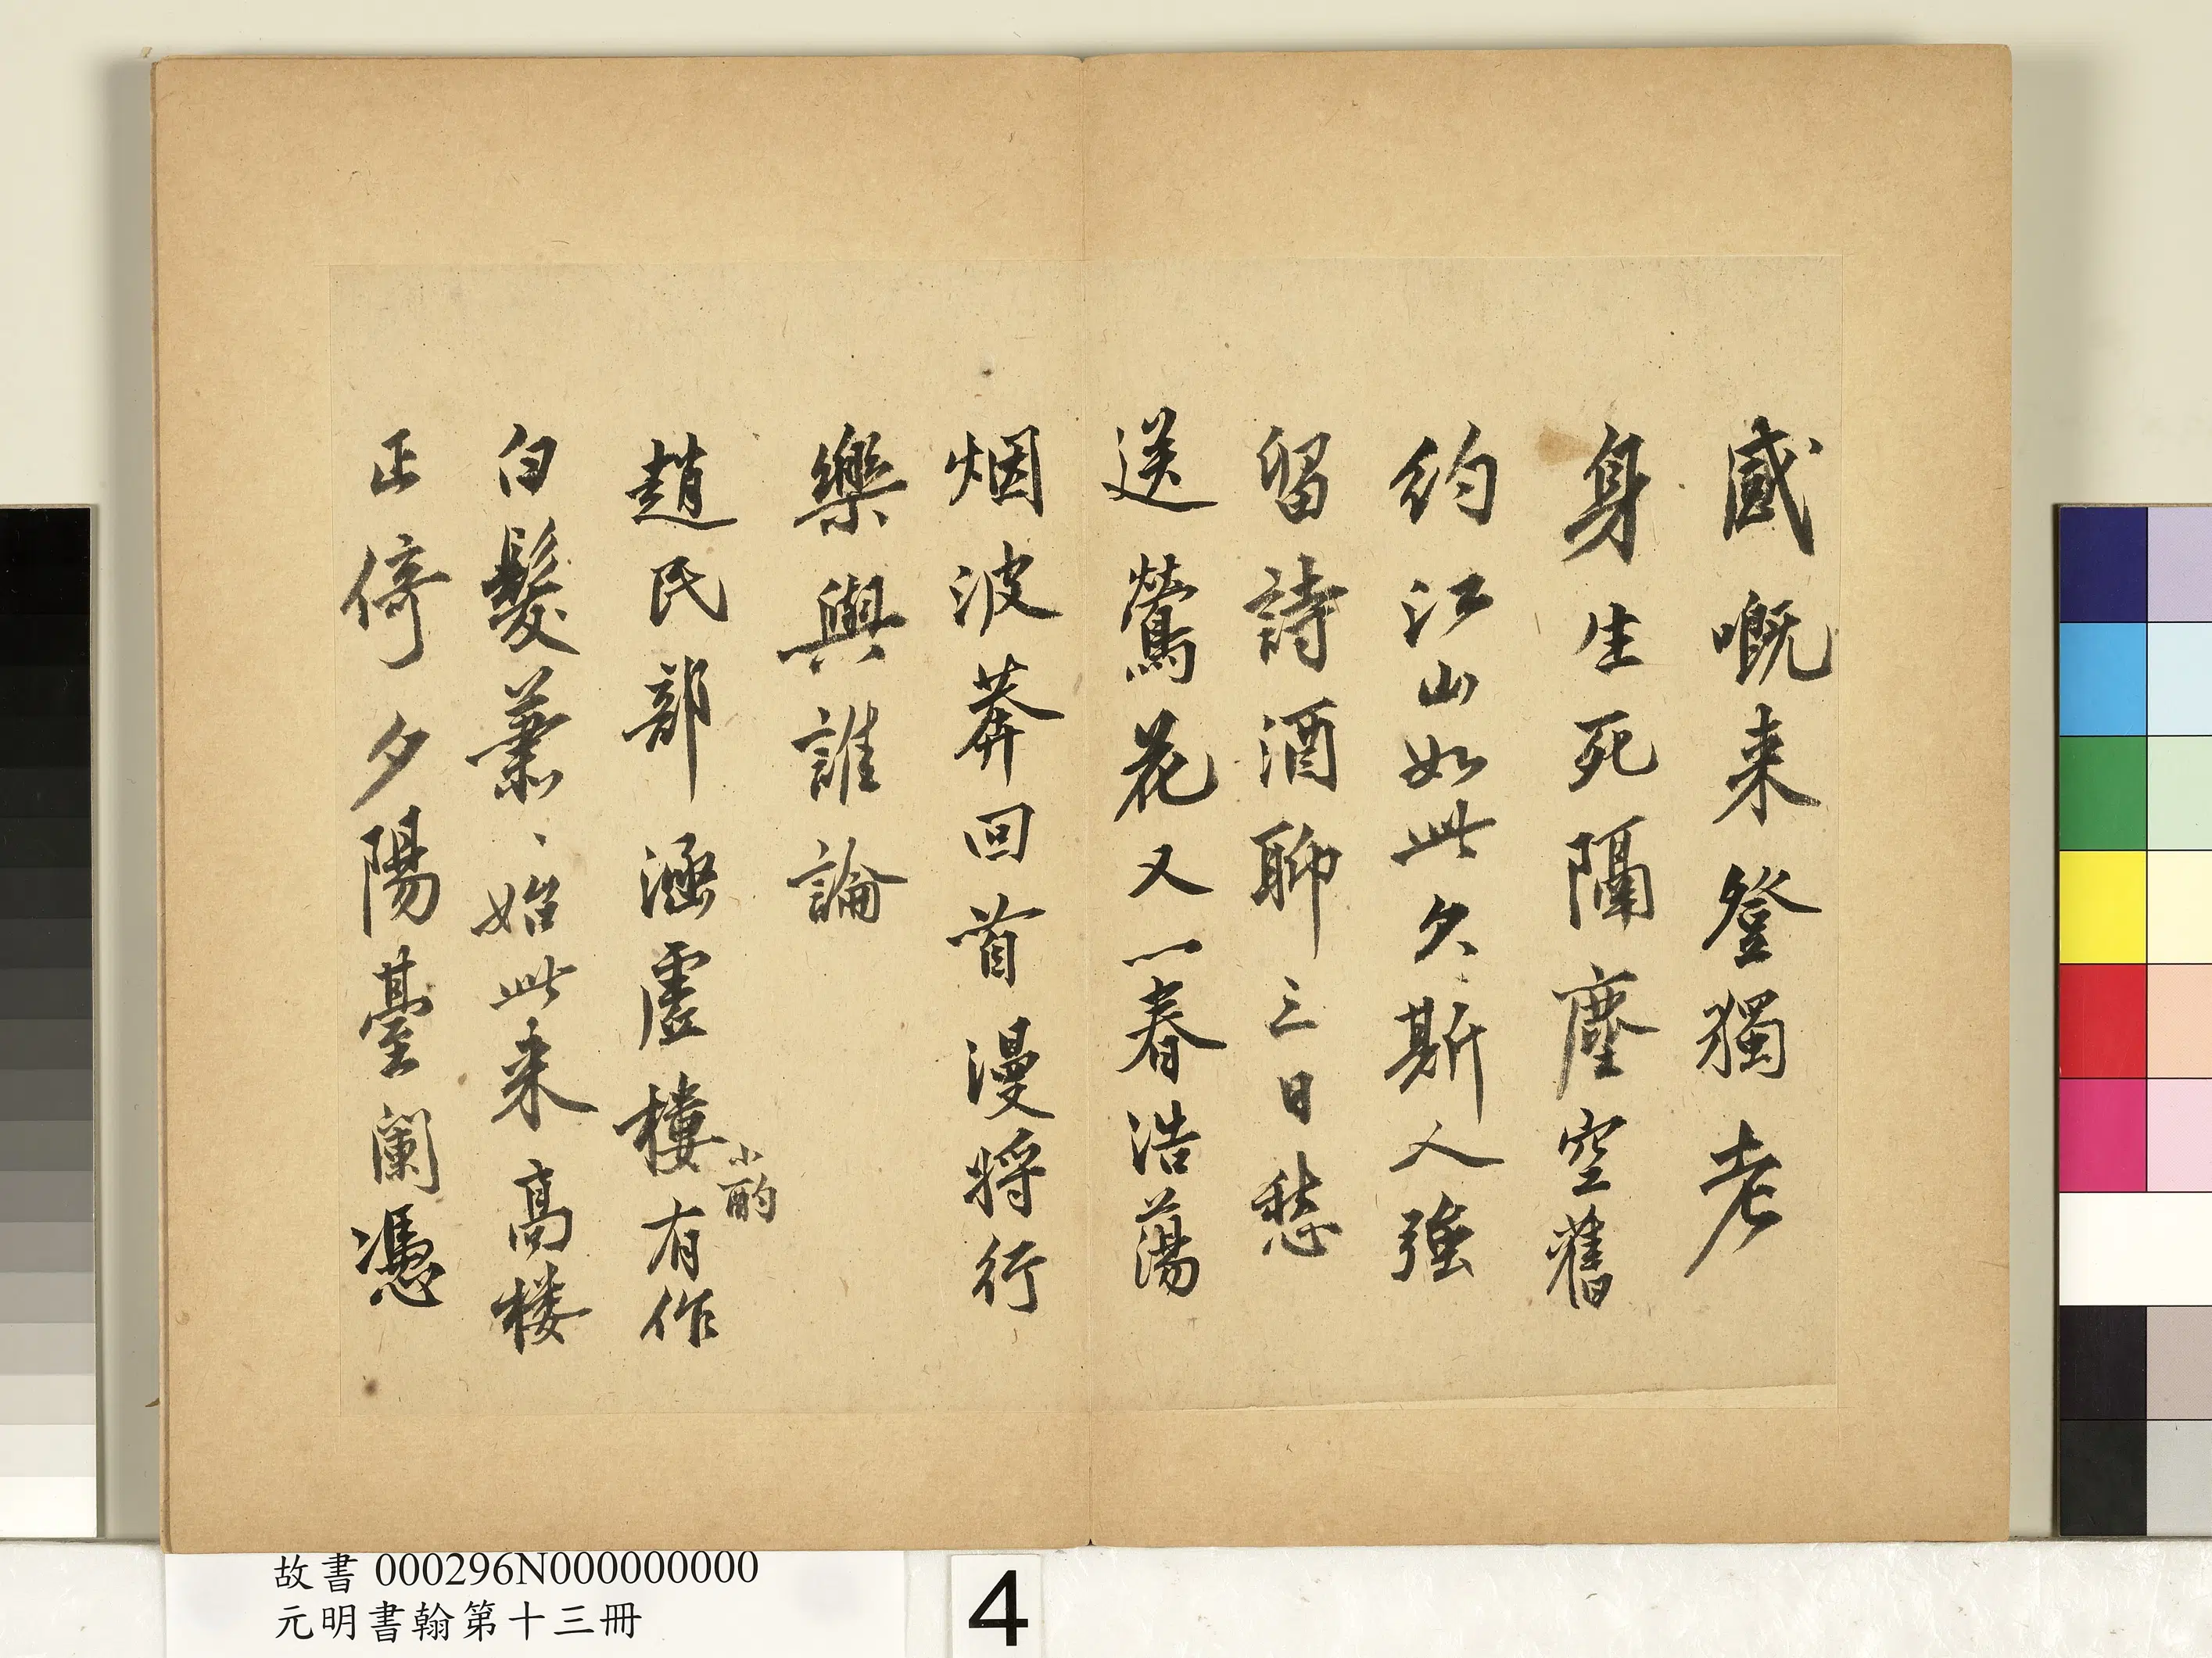 感嘅来登獨老
身生死隔塵空舊
約江山如此久斯人強
留詩酒聊三日愁
送鶯花又一春浩蕩
烟波莽回首漫將行
樂與誰論
趙民部涵虛樓小酌有作
白髮蕭、始此来高楼
正倚夕陽臺闌憑
故書 000296N000000000
元明書翰第十三冊
4